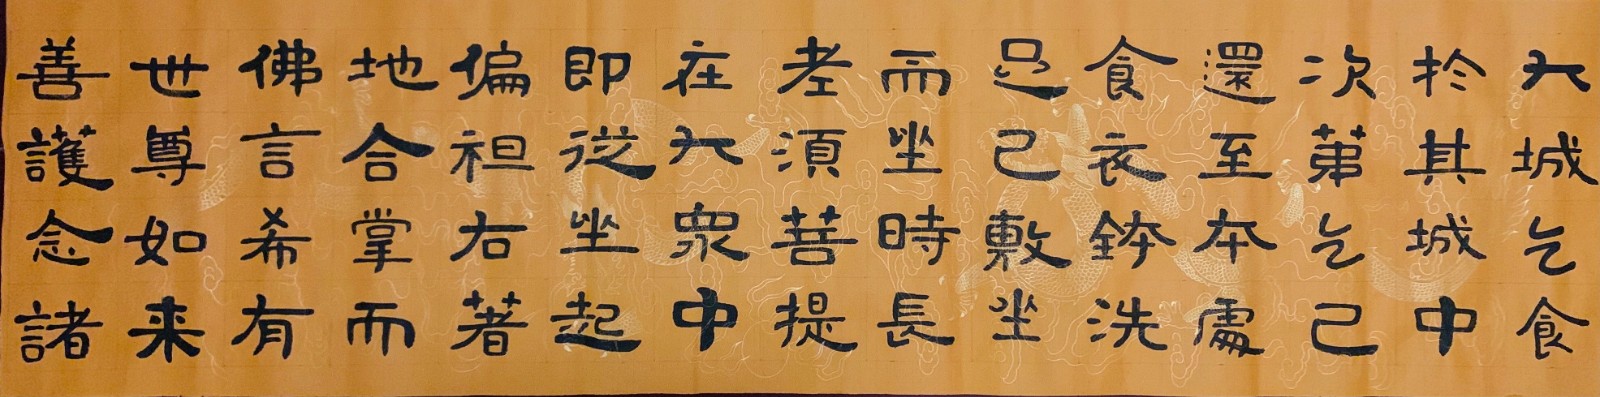 入城乞食
於其城中
次第乞已
還至本處
食衣鉢洗
足已敷坐
而坐時長
老須菩提
在大衆中
即從坐起
偏袒右著
地合掌而
佛言希有
世尊如来
善護念諸